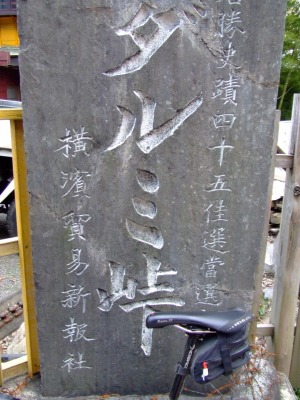 名勝史蹟四十五佳選當選
ダルミ峠
横濱貿易新報社